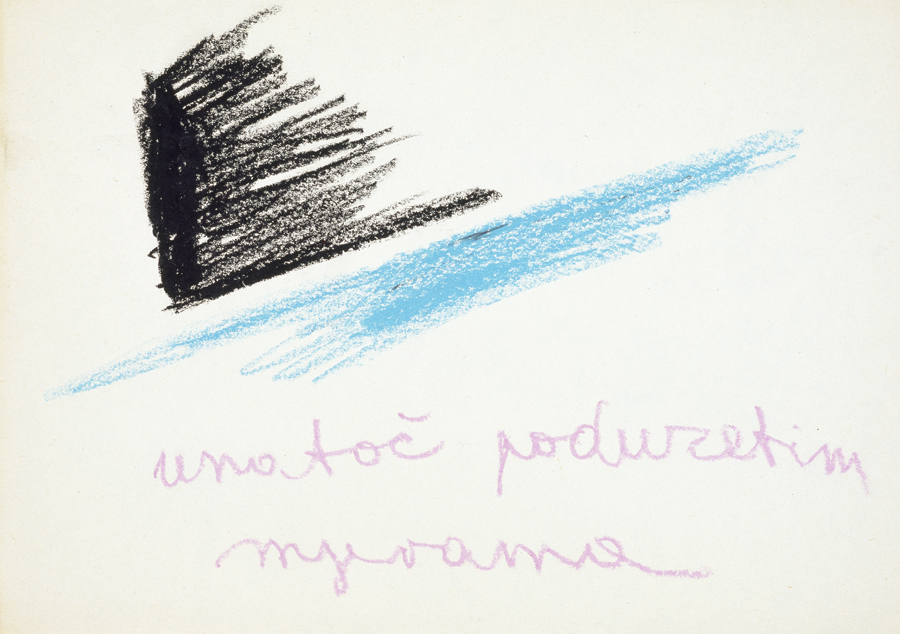 unatoč poduzetim
mjerama